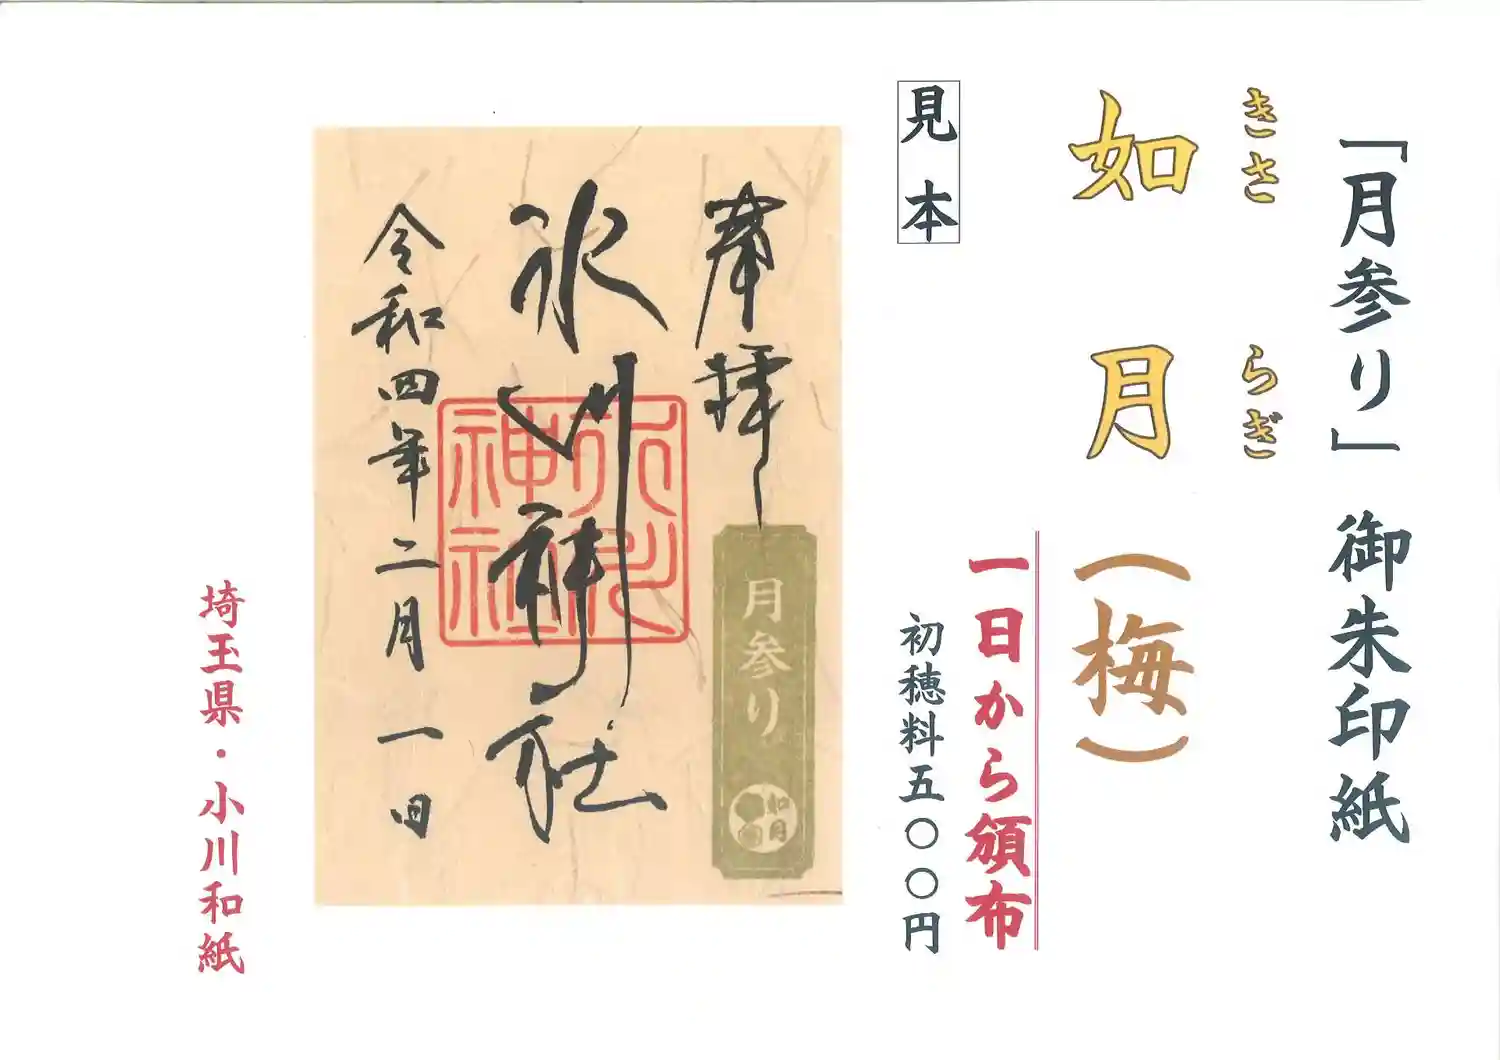 「月参り」御朱印紙
きさらぎ
如月(梅)
一日から頒布
初穂料五〇〇円
見本
奉拝
月参り
如月
氷川神社
氷川神社
令和四年二月一日
埼玉県・小川和紙